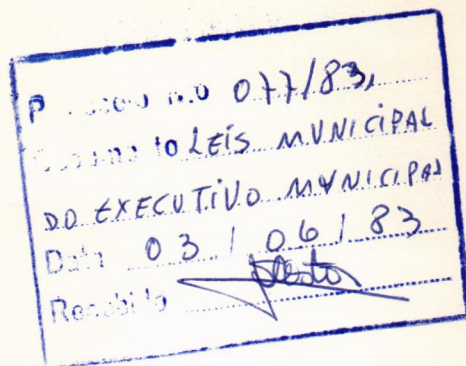 P ...colo N.º 077/83,
LEIS MUNICIPAL
DO EXECUTIVO MUNICIPAL
Data 03 / 06 / 83
Recebido